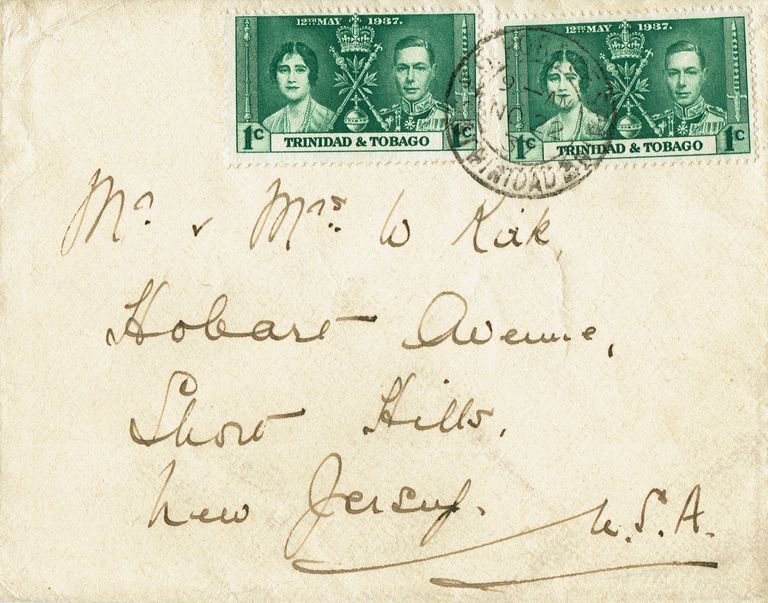 12TH MAY 1937.
1c TRINIDAD & TOBAGO 1c
12TH MAY 1937.
1c TRINIDAD & TOBAGO 1c
TRINIDAD
Mr & Mrs W Kirk,
Hobart Avenue,
Short Hills,
New Jersey.
U.S.A.